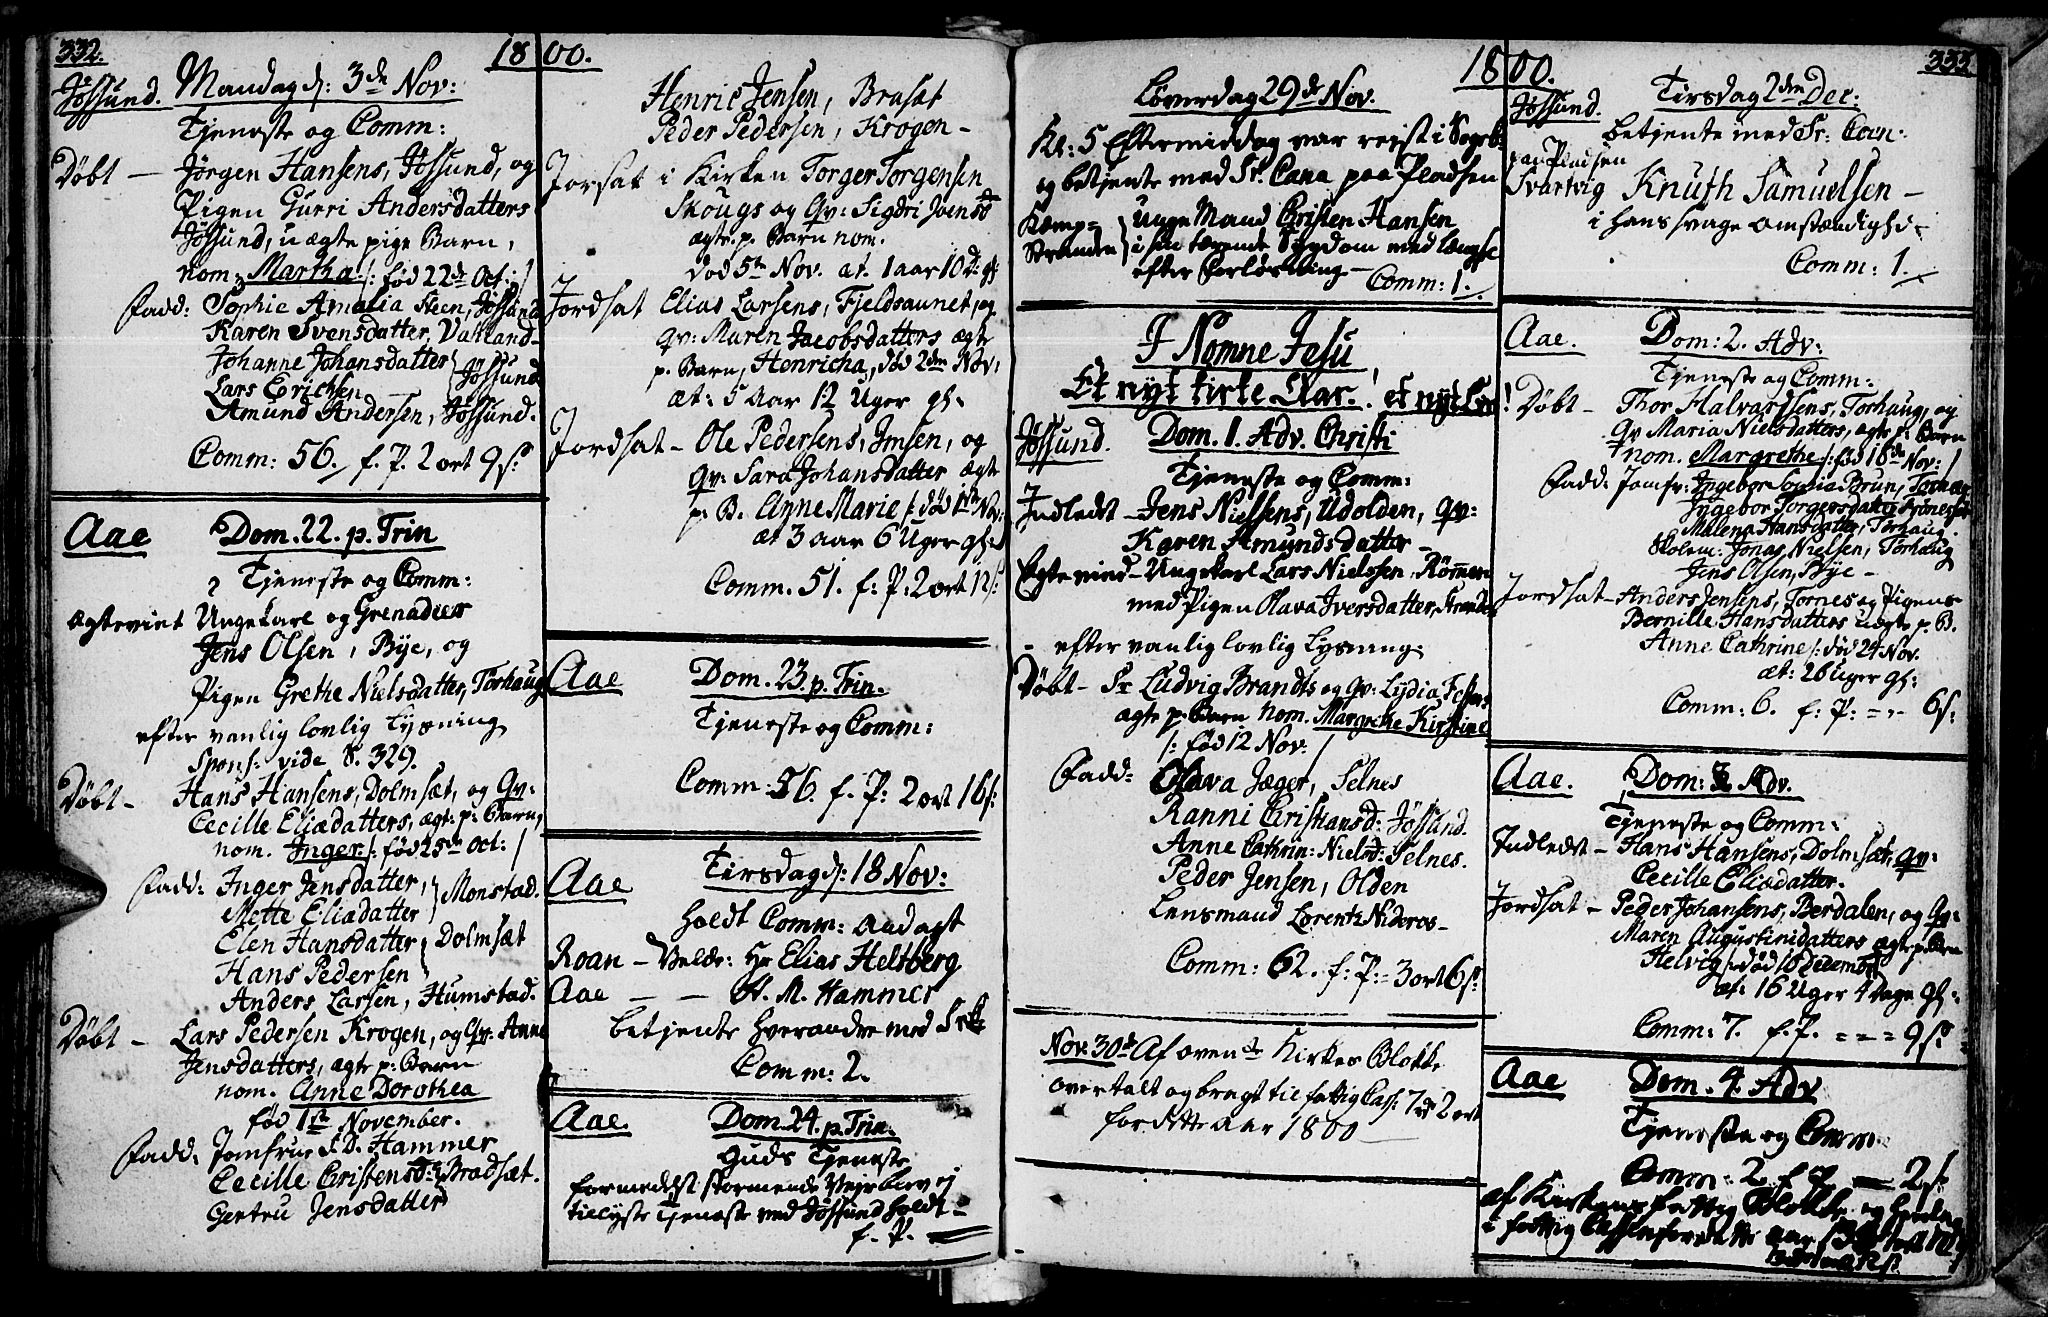 332.
1800.
Jössund. Mandag d: 3de Nov:
Tjeneste og Comm:
Döbt - Jörgen Hansens, Jössund, og
Pigen Gurri Andersdatters
Jössund, uægte pige Barn,
nom: Martha /: fød 22de Oct: /
Fadd: Sophie Amalia Steen, Jössund
Karen Svensdatter, Valland
Johanne Johansdatter } Jössund
Lars Erichsen
Amund Andersen, Jössund.
Comm: 56. f. P. 2 ort 9 s:
Aae Dom. 22. p. Trin
Tjeneste og Comm:
Ægteviet Ungekarl og Grenadeer
Jens Olsen, Bye, og
Pigen Grethe Nielsdatter, Torhaug
efter vanlig lovlig Lysning
Spons: vide S. 329.
Döbt - Hans Hansens, Dolmsæt, og Qv:
Cecille Eliædatters, ægt: p: Barn,
nom. Inger /: fød 25de Oct: /
Fadd: Inger Jensdatter, } Monstad.
Mette Eliædatter
Elen Hansdatter } Dolmsæt
Hans Pedersen
Anders Larsen, Humstad.
Döbt - Lars Pedersen Krogen, og Qv: Anne
Jensdatters, ægte p: Barn
nom. Anne Dorothea
fød 1ste November.
Fadd: Jomfrue J. D. Hammer
Cecille Cristensd: } Bradsæt.
Gertru Jensdatter
Henric Jensen, Brasæt
Peder Pedersen, Krogen -
Jorsat i Kirken Torger Torgersen
Skougs og Qv: Sigdri Joensd
ægte p. Barn nom.
død 5te Nov. æt. 1 aar 10 d: gl:
Jordsat Elias Larsens, Fjeldsaunet, og
Qv: Maren Jacobsdatters ægte
p. Barn, Henricha, død 2den Nov:
æt: 5 Aar 12 Uger gl:
Jordsat - Ole Pedersens, Imsen, og
Qv: Sara Johansdatter ægte
p. B. Anne Marie /: død 1ste Nov:
æt 3 aar 6 Uger gl:
Comm. 51. f: P: 2 ort 12 s:
Aae Dom. 23. p. Trin.
Tjeneste og Comm:
Comm: 56. f. P: 2 ort 16 s:
Aae Tirsdag d: 18 Nov:
holdt Comm: Andagt
Roan - Velær: Hr Elias Heltberg
Aae - - A. M. Hammer
betjente hverandre med
Comm: 2.
Aae. Dom. 24. p. Trin.
Guds Tjeneste
formedelst stormende Vejr blev ej
tillyste Tjeneste ved Jössund holdt -
f. P. -
1800.
Löverdag 29de Nov.
Kl: 5 Eftermiddag var rejst i Sogneb:
og betjente med Sr. Cæna paa Pladsen
Kæmp= } Unge Mand Christen Hansen
Stranden } i sin tærende Sygdom med længsel
efter Forlösning -
Comm: 1.
I Nomne Jesu
Et nyt Kirke Aar! et nyt
Jössund. Dom. 1. Adv. Christi
Tjeneste og Comm:
Indledt - Jens Nielsens, Udolden, Qv:
Karen Amundsdatter -
Ægteviud - Ungekarl Lars Nielssen, Römmen
med Pigen Olava Iversdatter, Stranden
- efter vanlig lovlig Lysning
Döbt - Sr Ludvig Brandts og Qv: Lydia
ægte p: Barn nom. Margrethe Kirstine
/: fød 12 Nov: /
Fadd: Olava Jæger, Selnes
Ranni Cristiansd: Jössund.
Anne Cathrin: Nielsd: Selnes.
Peder Jensen, Olden
Lensmand Lorentz Nideros -
Comm: 62. f: P: = 3 ort 6 s:
Nov. 30de Af oven Kirkes Blokke
overtalt og bragt til fattig Cass: 7 rd 2 ort
for dette Aar 1800
333
Jössund. Tirsdag 2den Dec:
betjente med Sr: Cæn:
paa Pladsen
Svartvig Knuth Samuelsen -
i hans svage omstændighe -
Comm: 1.
Aae. Dom: 2. Adv:
Tjeneste og Comm:
Döbt - Thor Halvarssens, Torhaug, og
Qv Maria Nielsdatters, ægte p: Barn
nom. Margrethe /: fød 18de Nov: /
Fadd: Jomfr: Ingebor Sophia Brun, Torhaug
Ingebor Torgersdatter
Malena Hansdatter, Torhaug.
Skolem: Jonas Nielsen, Torhaug
Jens Olsen, Bye -
Jordsat - Anders Jensens, Tornes og Pigens
Bernille Hansdatters uægte p. B.
Anne Cathrine /: død 24 Nov.
æt: 26 Uger gl:
Comm: 6. f: P: = = - 6 s:
Aae. Dom: 3 Adv.
Tjeneste og Comm:
Indledt - Hans Hansens, Dolmsæt, Qv:
Cecille Eliædatter.
Jordsat - Peder Johansens, Berdalen, og Qv:
Maren Augustinidatters ægte p. Barn
Helvig /: død 10 December
æt: 16 Uger 4 Dage gl:
Comm: 7. f. P. = = = 9 s:
Aae Dom. 4. Adv
Tjeneste og Comm:
Comm: 2. f P - 2 s:
af Kirkens fattig Blokke og
i fattig Cassen for dette Aar